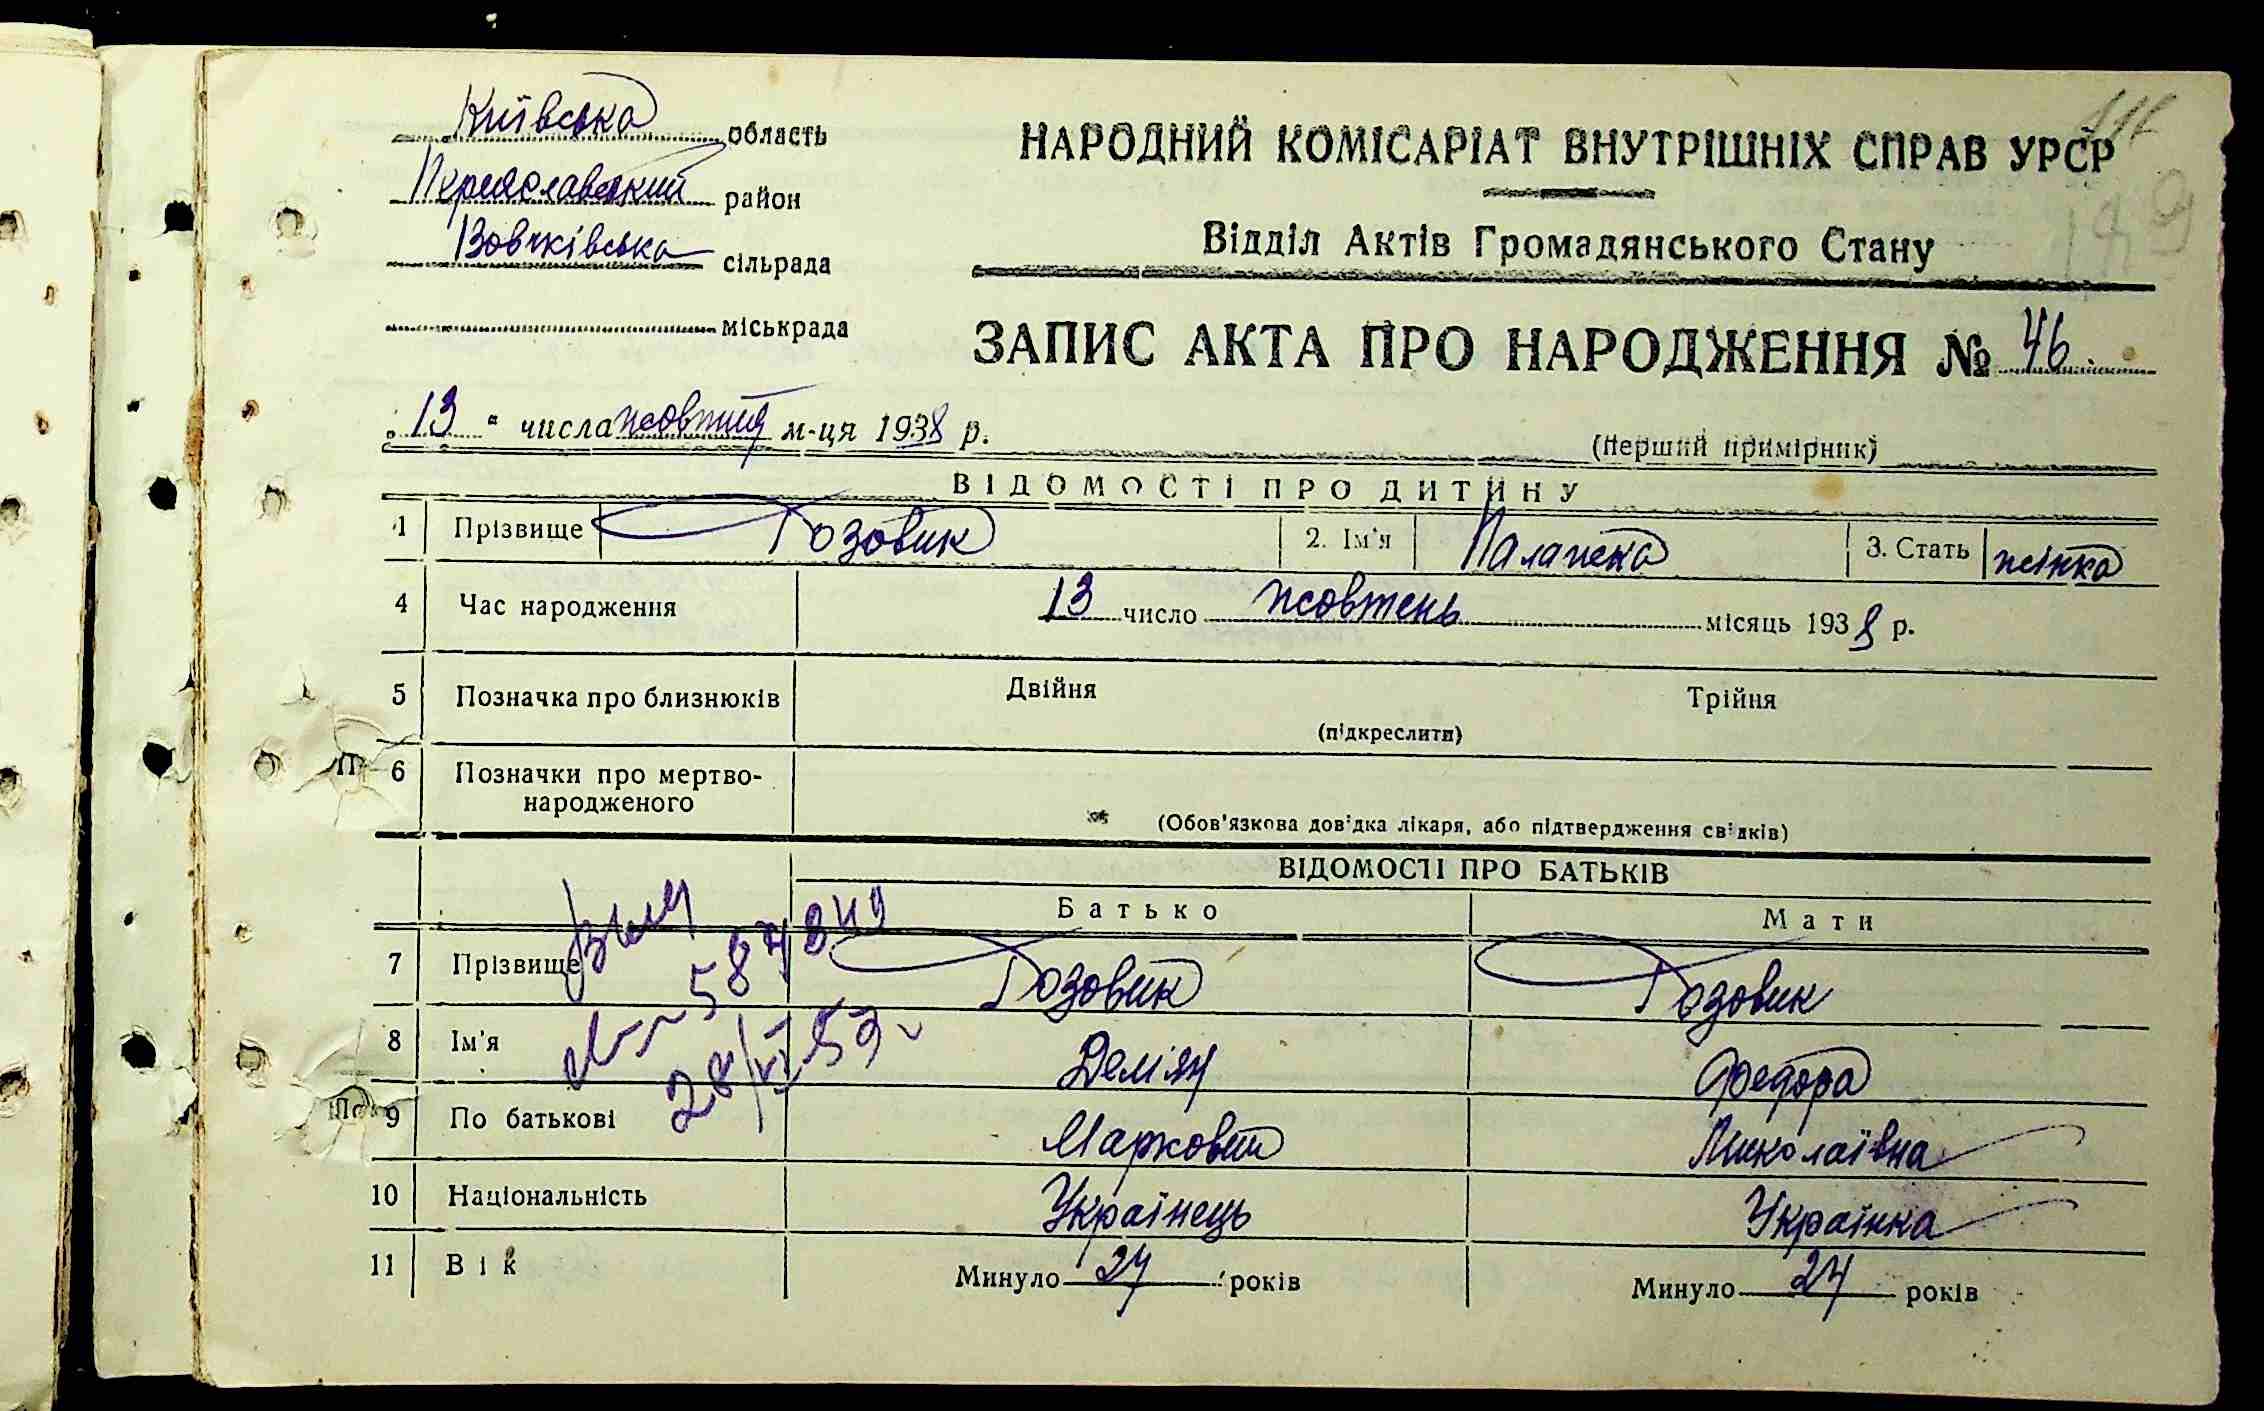 Київська область
Переяславський район
Вовчківська сільрада
міськрада
НАРОДНИЙ КОМІСАРІАТ ВНУТРІШНІХ СПРАВ УРСР
Відділ Актів Громадянського Стану
ЗАПИС АКТА ПРО НАРОДЖЕННЯ № 46
"13" числа жовтня м-ця 1938 р.
(перший примірник)
ВІДОМОСТІ ПРО ДИТИНУ
1 Прізвище Гозовик 2. Ім'я Палажка 3. Стать жінка
4 Час народження 13 число жовтень місяць 1938 р.
5 Позначка про близнюків Двійня Трійня
(підкреслити)
6 Позначки про мертво-
народженого
(Обов'язкова довідка лікаря, або підтвердження свідків)
ВІДОМОСТІ ПРО БАТЬКІВ
Батько Мати
7 Прізвище Гозовик Гозовик
8 Ім'я Дем'ян Федора
9 По батькові Маркович Миколаївна
10 Національність Українець Українка
11 Вік Минуло 27 років Минуло 27 років
28/VI 53 г.